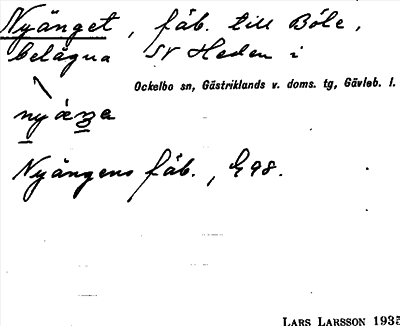 Nyänget, fäb. till Böle,
belägna SV Heden i
Ockelbo sn, Gästriklands v. doms. tg, Gävleb. l.
Nyängens fäb., G98.
LARS LARSSON 1935